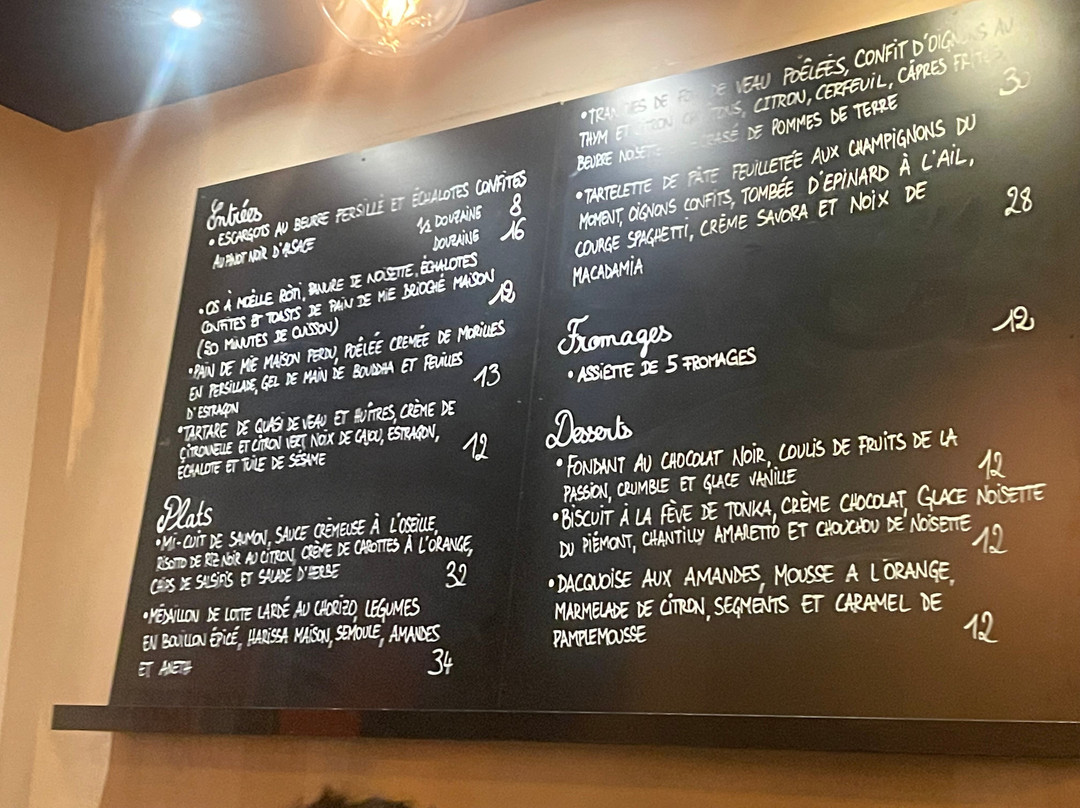 Entrées
• ESCARGOTS AU BEURRE PERSILLÉ ET ÉCHALOTES CONFITES
AU PINOT NOIR D'ALSACE
½ DOUZAINE 8
DOUZAINE 16
• OS À MOËLLE RÔTI, PANURE DE NOISETTE, ÉCHALOTES
CONFITES ET TOASTS DE PAIN DE MIE BRIOCHÉ MAISON
(20 MINUTES DE CUISSON) 12
• PAIN DE MIE MAISON PERDU, POÊLÉE CREMÉE DE MORILLES
EN PERSILLADE, GEL DE MAIN DE BOUDDHA ET FEUILLES
D'ESTRAGON 13
• TARTARE DE QUASI DE VEAU ET HUÎTRES, CRÈME DE
CITRONNELLE ET CITRON VERT, NOIX DE CAJOU, ESTRAGON,
ÉCHALOTE ET TUILE DE SÉSAME 12
Plats
• MI-CUIT DE SAUMON, SAUCE CRÈMEUSE À L'OSEILLE,
RISOTTO DE RIZ NOIR AU CITRON, CRÈME DE CAROTTES À L'ORANGE,
CHIPS DE SALSIFIS ET SALADE D'HERBE 32
• MÉDAILLON DE LOTTE LARDÉ AU CHORIZO, LEGUMES
EN BOUILLON ÉPICÉ, HARISSA MAISON, SEMOULE, AMANDES
ET ANETH 34
• TRANCHES DE DE VEAU POÊLÉES, CONFIT D'OIGNONS AU
THYM ET CITRON, CITRON, CERFEUIL, CÂPRES FRITES
BEURRE NOISETTE DE POMMES DE TERRE 30
• TARTELETTE DE PÂTE FEUILLETÉE AUX CHAMPIGNONS DU
MOMENT, OIGNONS CONFITS, TOMBÉE D'EPINARD À L'AIL,
COURGE SPAGHETTI, CRÈME SAVORA ET NOIX DE
MACADAMIA 28
Fromages
• ASSIETTE DE 5 FROMAGES 12
Desserts
• FONDANT AU CHOCOLAT NOIR, COULIS DE FRUITS DE LA
PASSION, CRUMBLE ET GLACE VANILLE 12
• BISCUIT À LA FÈVE DE TONKA, CRÈME CHOCOLAT, GLACE NOISETTE
DU PIÉMONT, CHANTILLY AMARETTO ET CHOUCHOU DE NOISETTE 12
• DACQUOISE AUX AMANDES, MOUSSE A L'ORANGE,
MARMELADE DE CITRON, SEGMENTS ET CARAMEL DE
PAMPLEMOUSSE 12